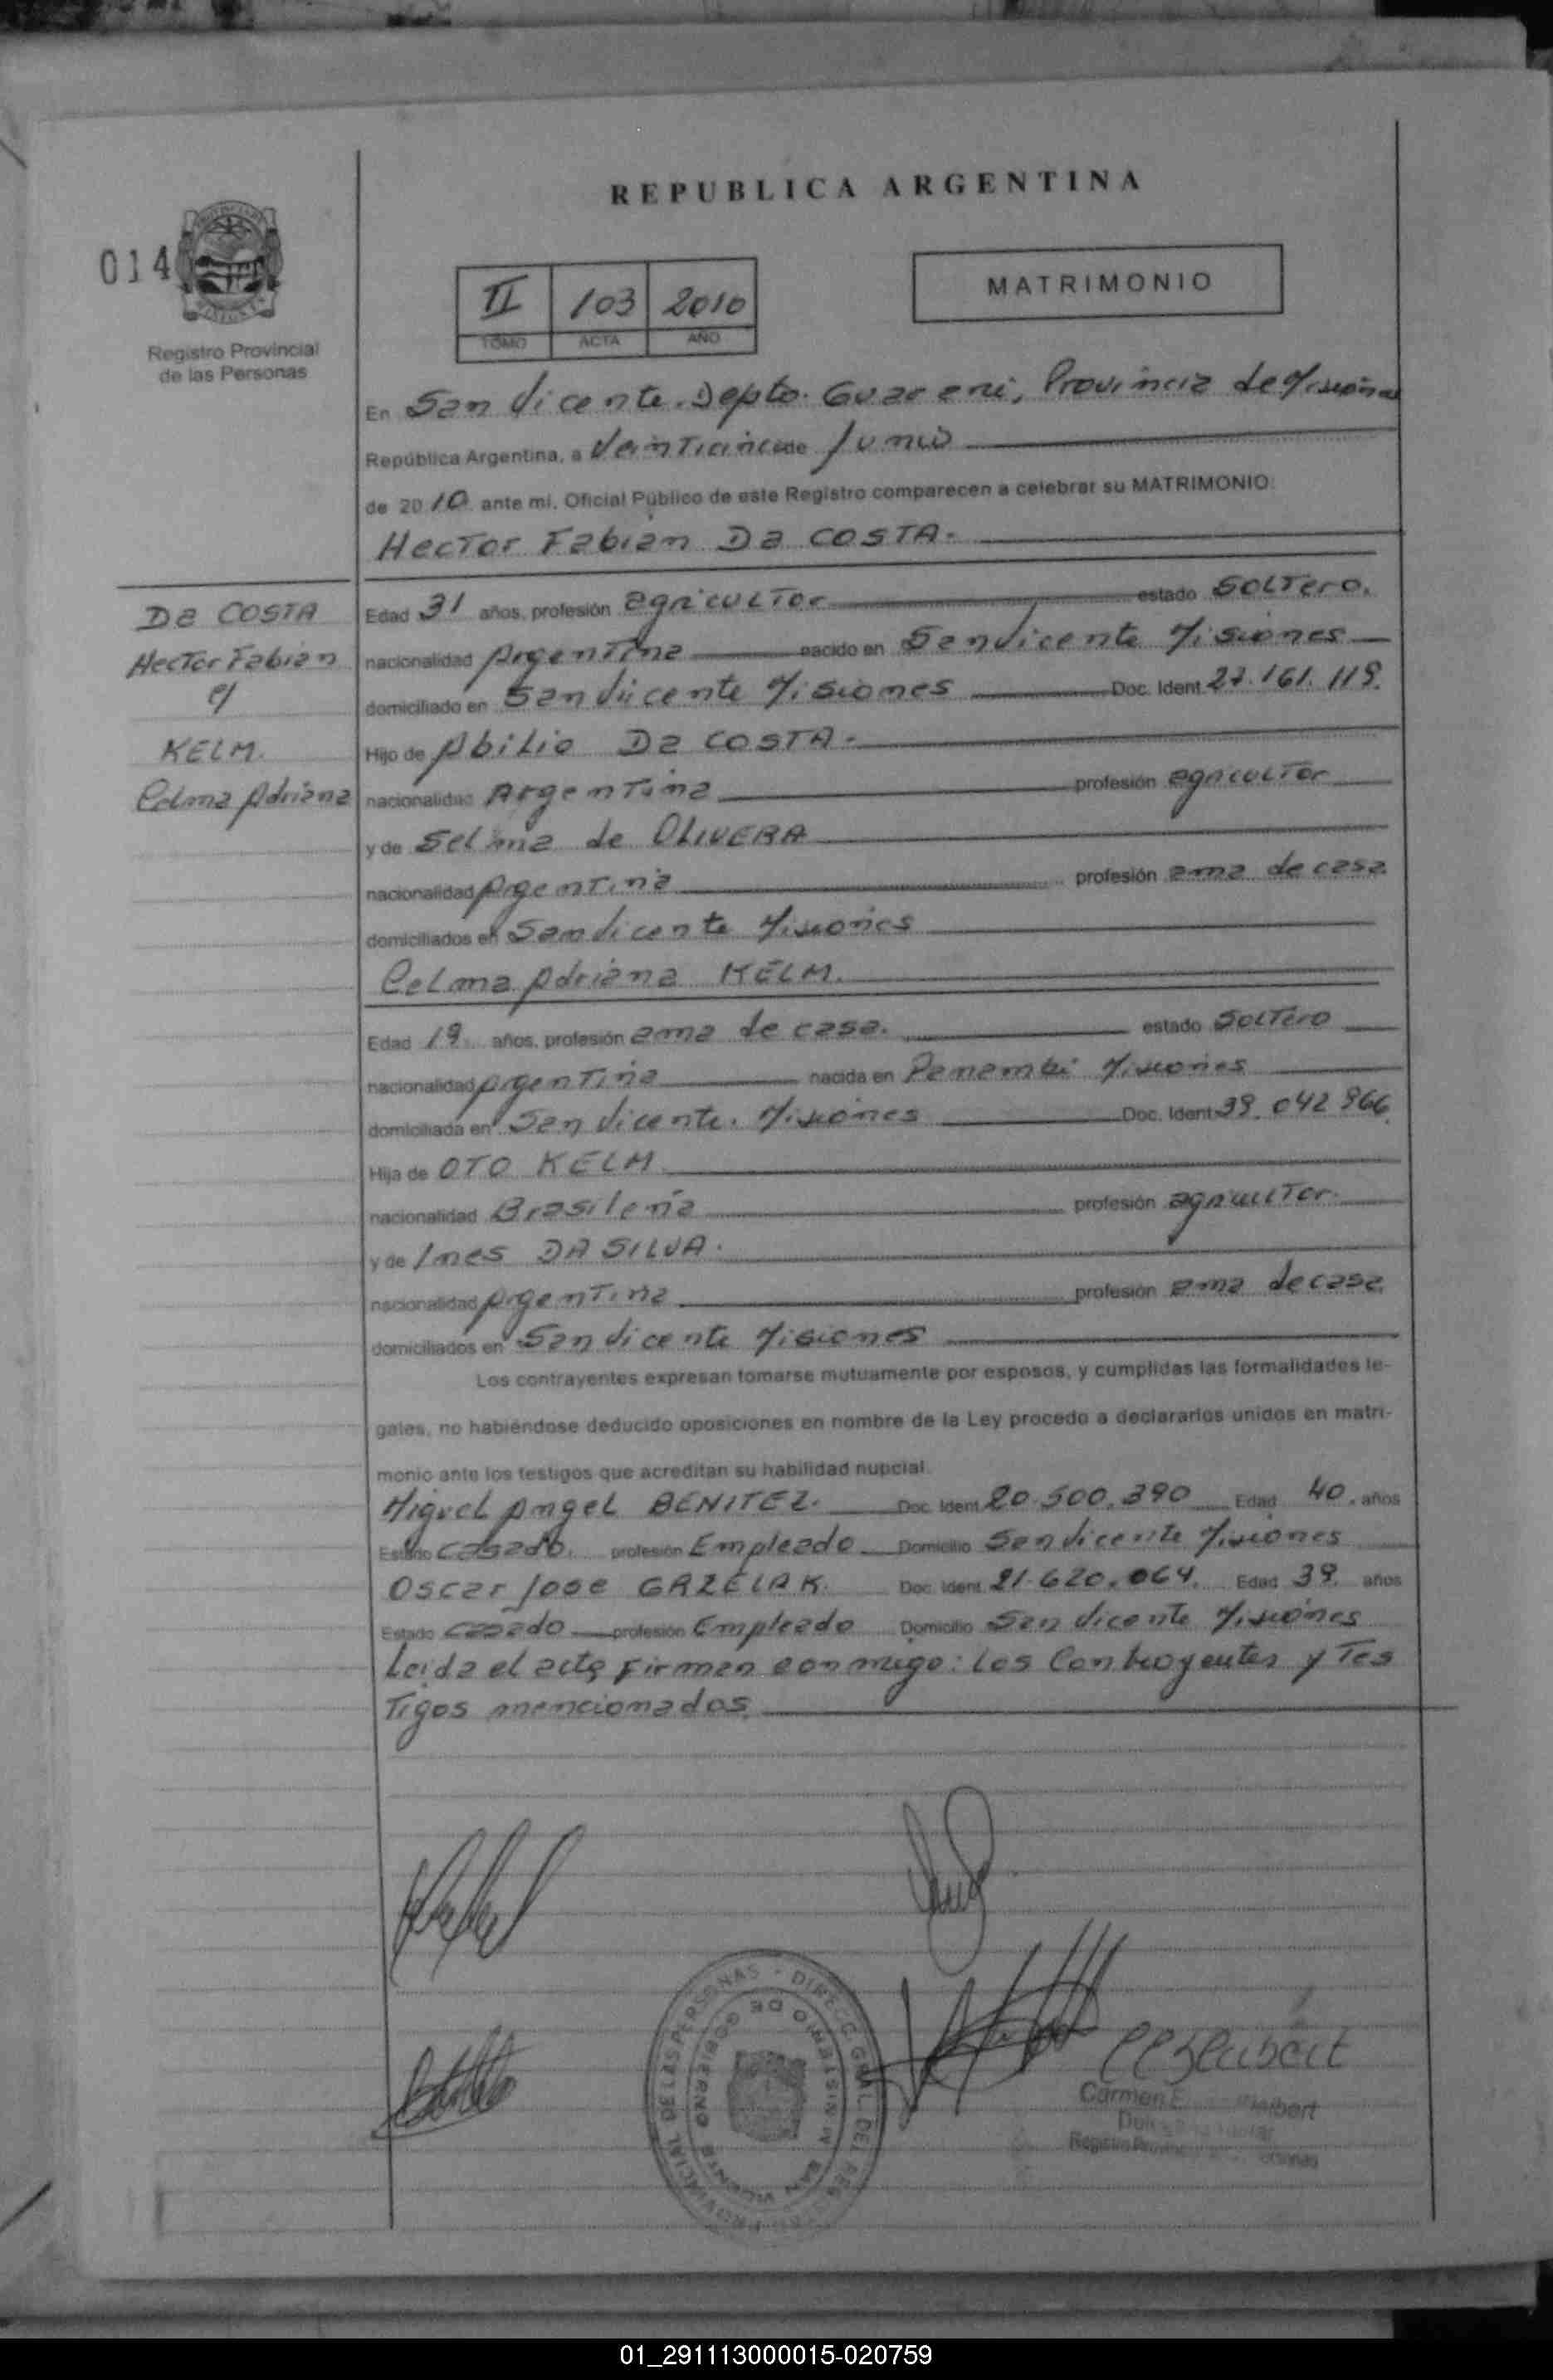 REPUBLICA ARGENTINA
014
Registro Provincial
de las Personas
II 103 2010
TOMO ACTA AÑO
MATRIMONIO
En San Vicente. Depto. Guarani, Provincia de Misiones
República Argentina, a Veinticinco de Junio
de 2010 ante mi, Oficial Público de este Registro comparecen a celebrar su MATRIMONIO:
Hector Fabian Da COSTA.
Da COSTA
Hector Fabian
c/
KELM.
Celma Adriana
Edad 31 años, profesión agricultor estado Soltero.
nacionalidad Argentina nacido en San Vicente Misiones
domiciliado en San Vicente Misiones Doc. Ident. 27.161.119.
Hijo de Abilio Da COSTA.
nacionalidad Argentina profesión agricultor
y de Selma de OLIVERA
nacionalidad Argentina profesión ama de casa
domiciliados en San Vicente Misiones
Celma Adriana KELM.
Edad 19 años, profesión ama de casa. estado Soltero
nacionalidad Argentina nacida en Panambi Misiones
domiciliada en San Vicente. Misiones Doc. Ident. 39.042.966.
Hija de OTO KELM
nacionalidad Brasileña profesión agricultor.
y de Ines DA SILVA.
nacionalidad Argentina profesión ama de casa.
domiciliados en San Vicente Misiones
Los contrayentes expresan tomarse mutuamente por esposos, y cumplidas las formalidades le-
gales, no habiéndose deducido oposiciones en nombre de la Ley procedo a declararlos unidos en matri-
monio ante los testigos que acreditan su habilidad nupcial.
Miguel Angel BENITEZ. Doc. Ident. 20.500.390 Edad 40. años
Estado Casado. profesión Empleado Domicilio San Vicente Misiones
Oscar Jose GRZELAK. Doc. Ident. 21.620.064. Edad 39. años
Estado Casado profesión Empleado Domicilio San Vicente Misiones
Leida el acta Firman conmigo: los Contrayentes y Tes
Tigos mencionados
PROVINCIAL DE LAS PERSONAS - DIREC. GRAL. DEL REG
MINISTERIO DE GOBIERNO SAN VICENTE
Carmen E.
01_291113000015-020759